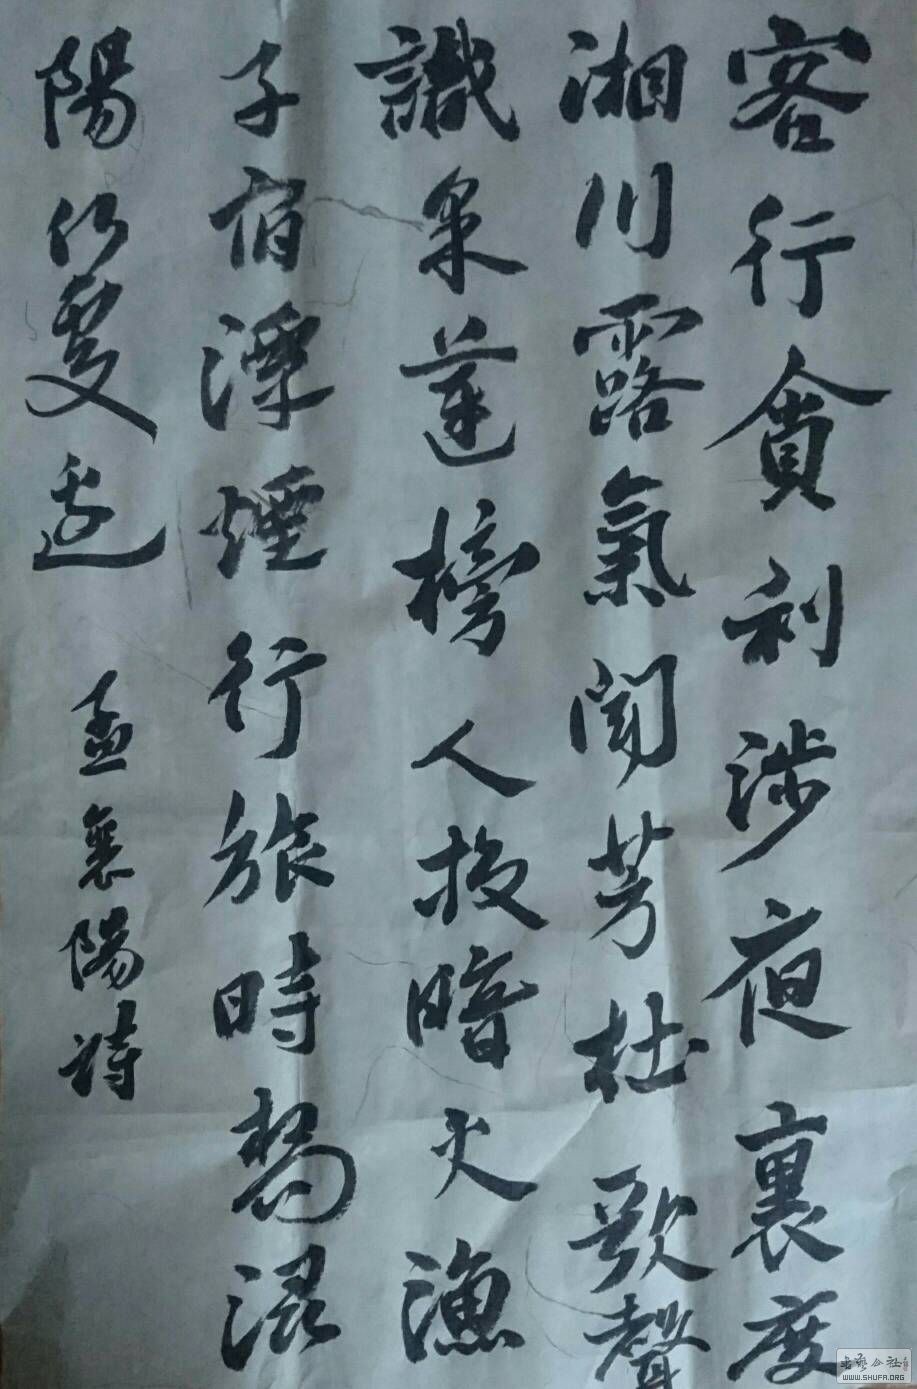 客行貪利涉夜裏度
湘川露氣聞芳杜歌聲
識采蓮榜人投暗火漁
子宿潭煙行旅時相問
陽何處邊 孟襄陽詩
书艺公社
WWW.SHUFA.ORG